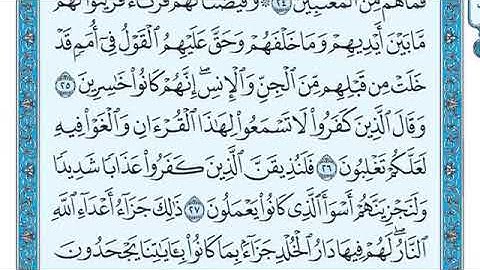 فَمَا هُم مِّنَ ٱلْمُعْتَبِينَ ٢٤ ۞ وَقَيَّضْنَا لَهُمْ قُرَنَآءَ فَزَيَّنُوا۟ لَهُم
مَّا بَيْنَ أَيْدِيهِمْ وَمَا خَلْفَهُمْ وَحَقَّ عَلَيْهِمُ ٱلْقَوْلُ فِىٓ أُمَمٍ قَدْ
خَلَتْ مِن قَبْلِهِم مِّنَ ٱلْجِنِّ وَٱلْإِنسِ ۖ إِنَّهُمْ كَانُوا۟ خَٰسِرِينَ ٢٥
وَقَالَ ٱلَّذِينَ كَفَرُوا۟ لَا تَسْمَعُوا۟ لِهَٰذَا ٱلْقُرْءَانِ وَٱلْغَوْا۟ فِيهِ
لَعَلَّكُمْ تَغْلِبُونَ ٢٦ فَلَنُذِيقَنَّ ٱلَّذِينَ كَفَرُوا۟ عَذَابًا شَدِيدًا
وَلَنَجْزِيَنَّهُمْ أَسْوَأَ ٱلَّذِى كَانُوا۟ يَعْمَلُونَ ٢٧ ذَٰلِكَ جَزَآءُ أَعْدَآءِ ٱللَّهِ
ٱلنَّارُ ۖ لَهُمْ فِيهَا دَارُ ٱلْخُلْدِ ۖ جَزَآءًۢ بِمَا كَانُوا۟ بِـَٔايَٰتِنَا يَجْحَدُونَ